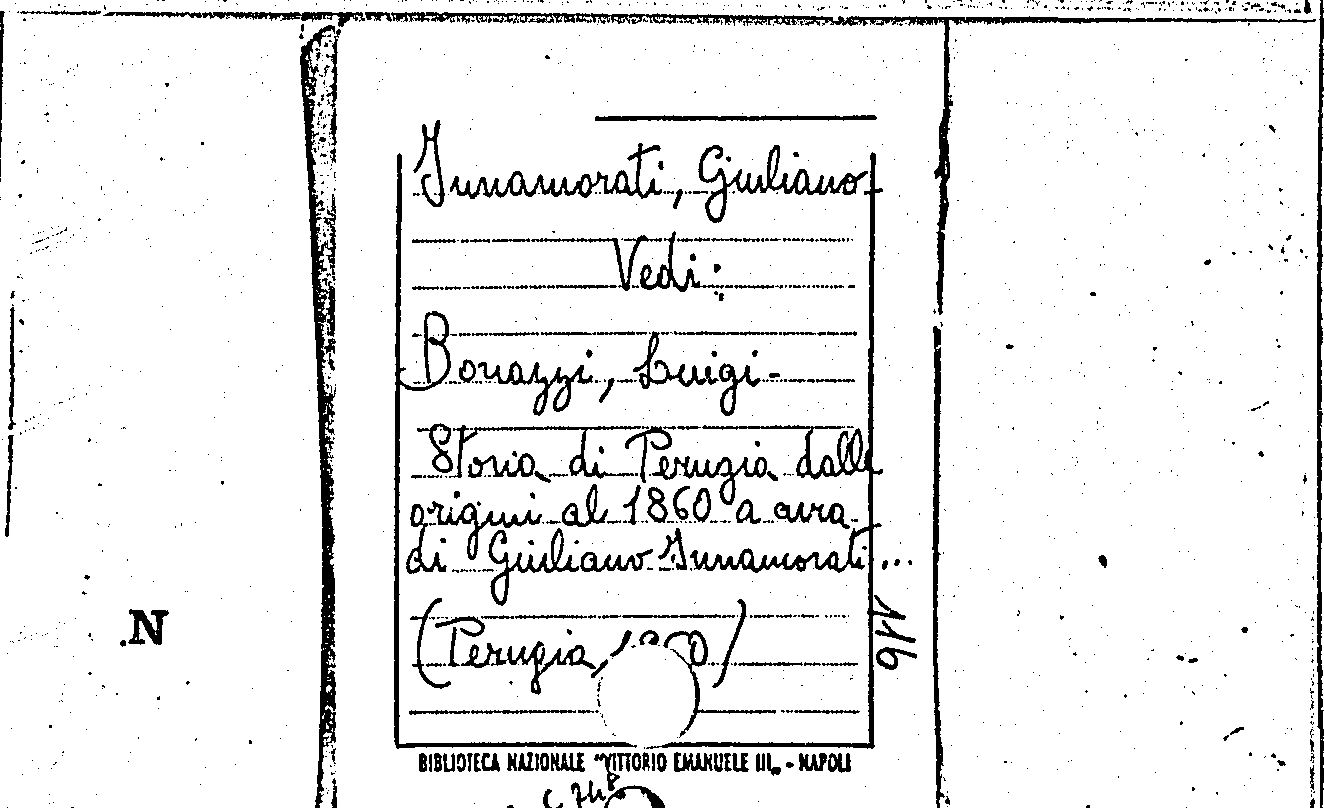 Innamorati, Giuliano-
Vedi:
Bonazzi, Luigi-
Storia di Perugia dalle
origini al 1860 a cura
di Giuliano Innamorati...
(Perugia,
116
N.
BIBLIOTECA NAZIONALE "VITTORIO EMANUELE III„ - NAPOLI